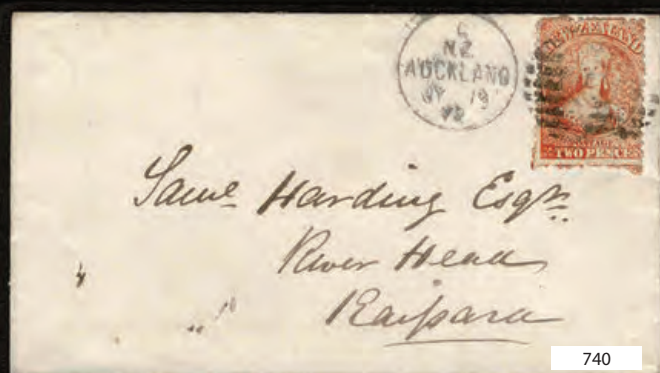 C
N.Z.
AUCKLAND
19
NEW ZEALAND
POSTAGE
TWO PENCE
Saml Harding Esqr.
River Head
Kaipara
740